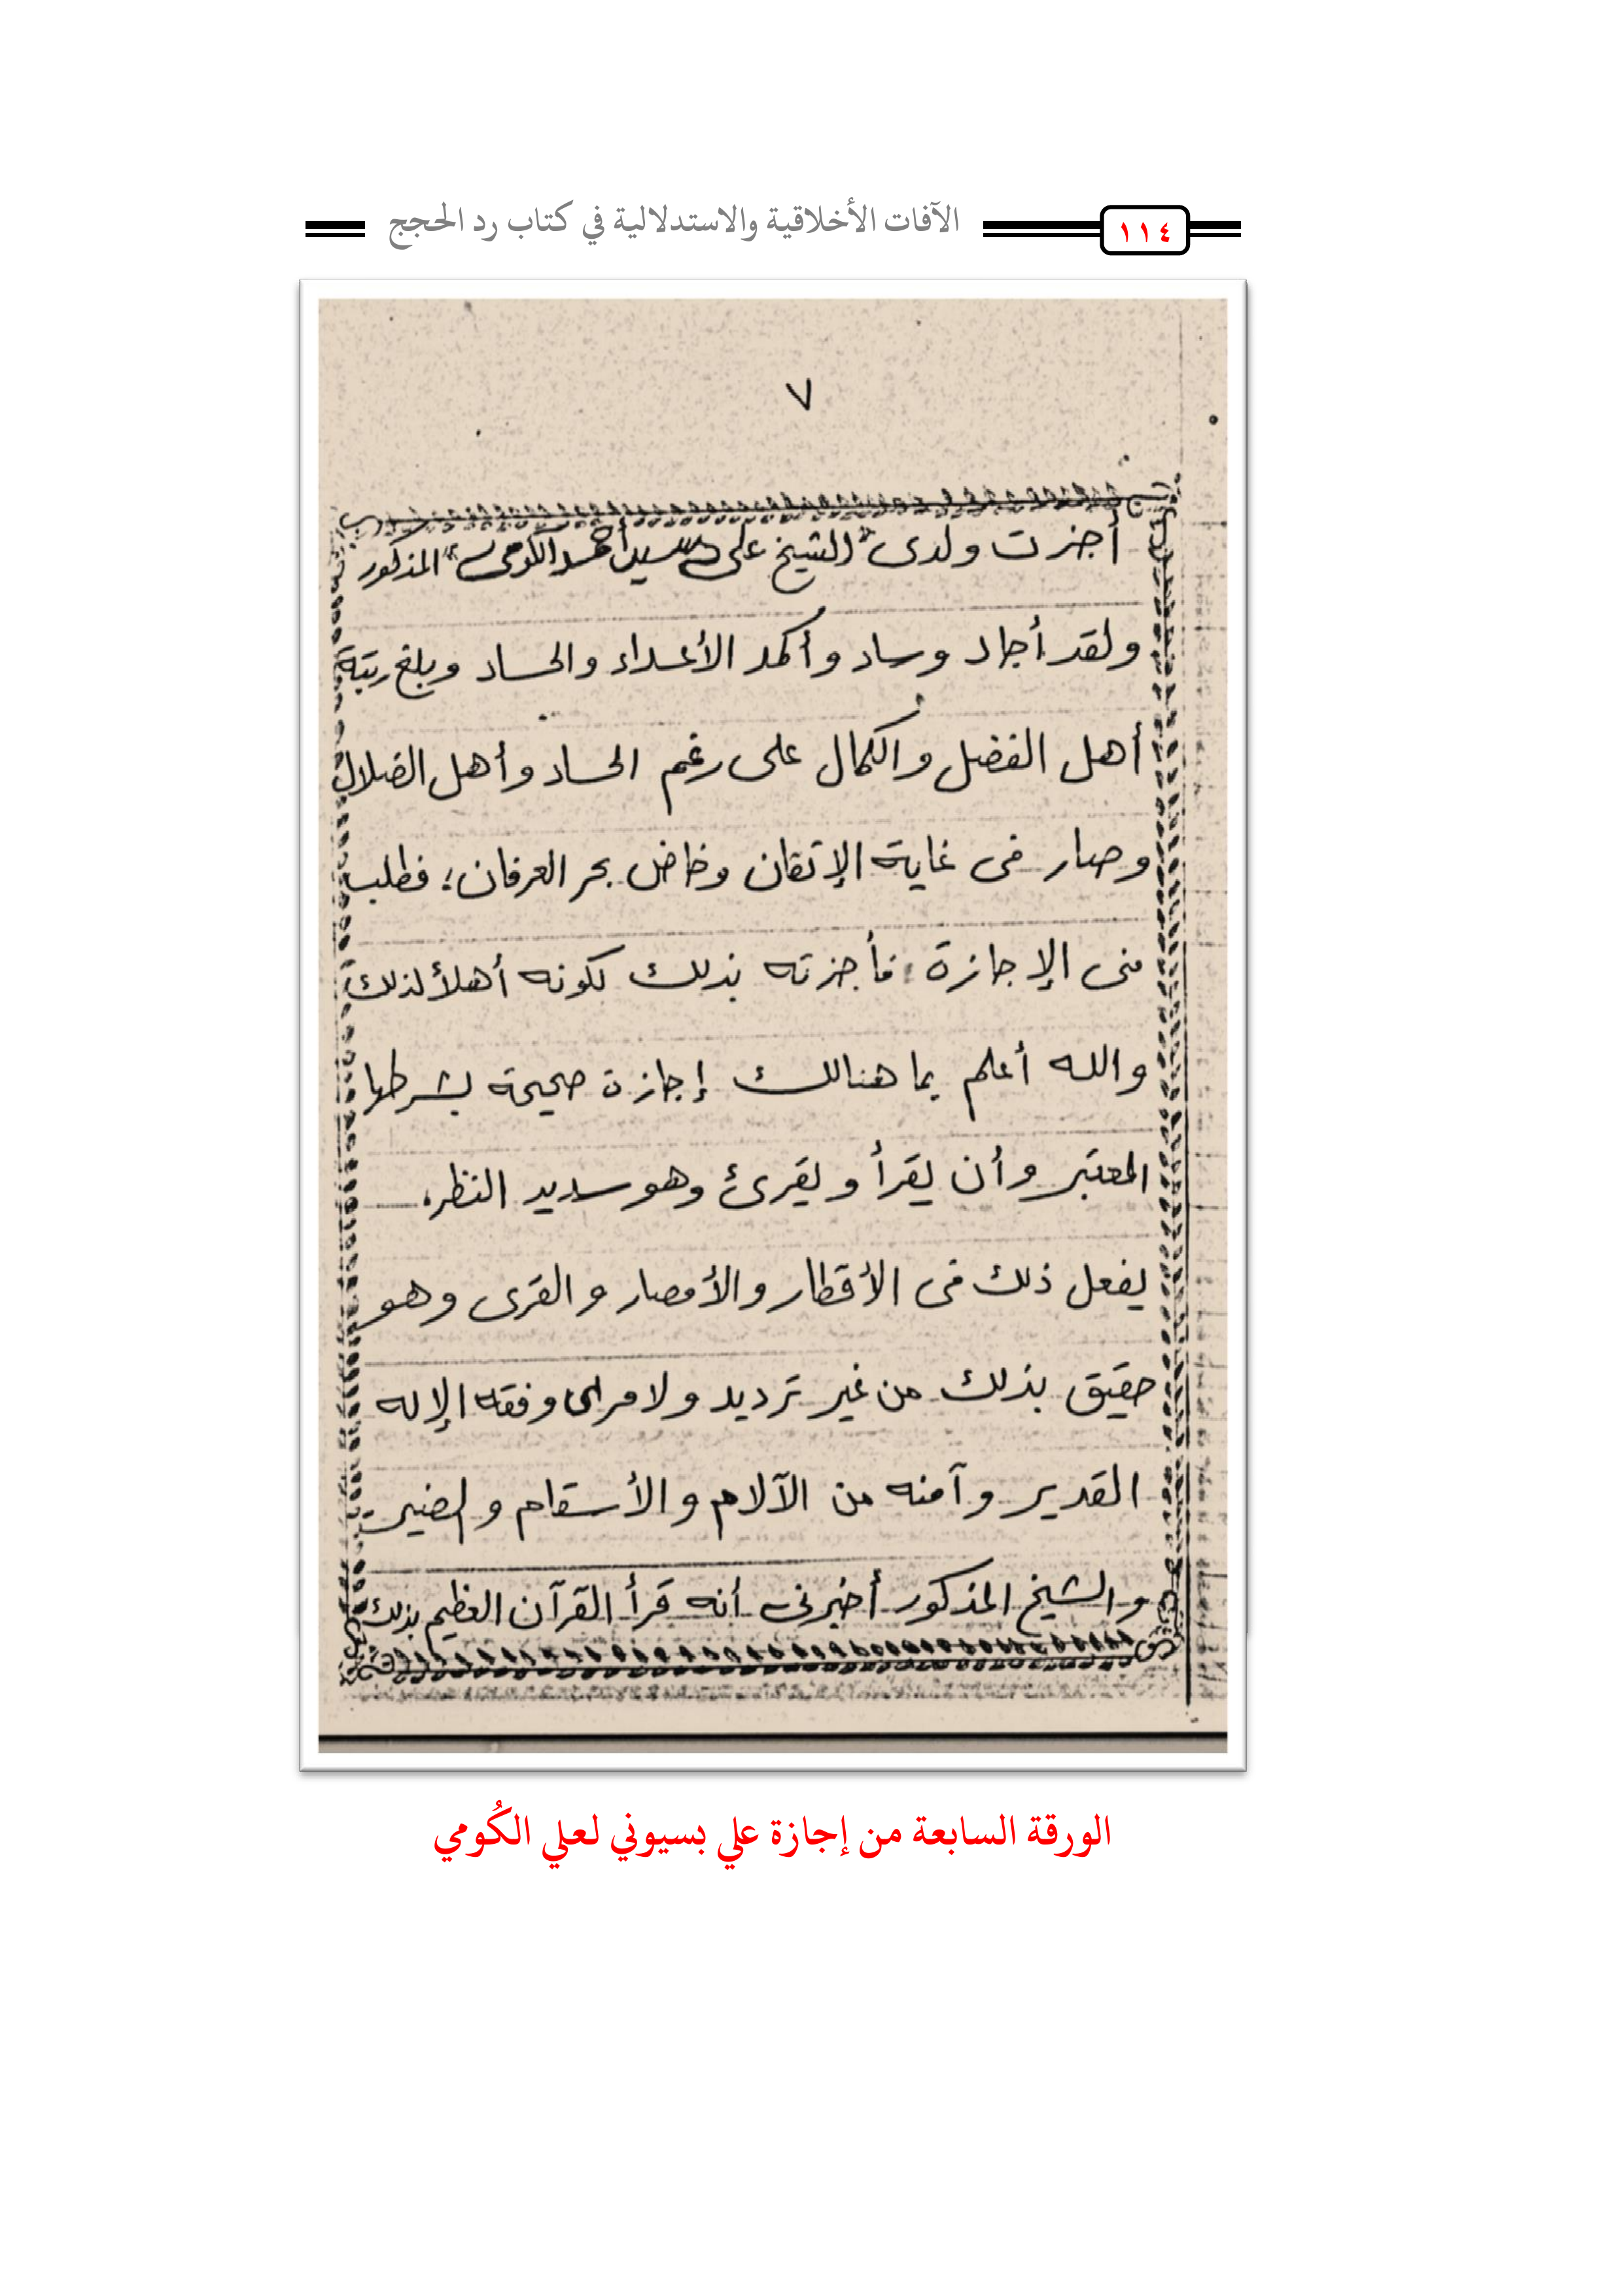 الآفات الأخلاقية والاستدلالية في كتاب رد الحجج
١١٤
٧
أجزت ولدى "الشيخ على سيد أحمد الكومى" المذكور
ولقد أجاد وساد وأكمد الأعداء والحساد وبلغ رتبة
أهل الفضل والكمال على رغم الحساد وأهل الضلال
وصار فى غاية الإتقان وخاض بحر العرفان؛ فطلب
منى الإجازة، فأجزته بذلك لكونه أهلاً لذلك
والله أعلم بما هنالك إجازة صحيحة بشرطها
المعتبر وأن يقرأ ويقرئ وهو سديد النظر.
يفعل ذلك فى الأقطار والأمصار والقرى وهو
حقيق بذلك من غير ترديد ولا مرا وفقه الإله
القدير وآمنه من الآلام والأسقام
والشيخ المذكور أخبرنى أنه قرأ القرآن العظيم بذلك
الورقة السابعة من إجازة علي بسيوني لعلي الكُومي